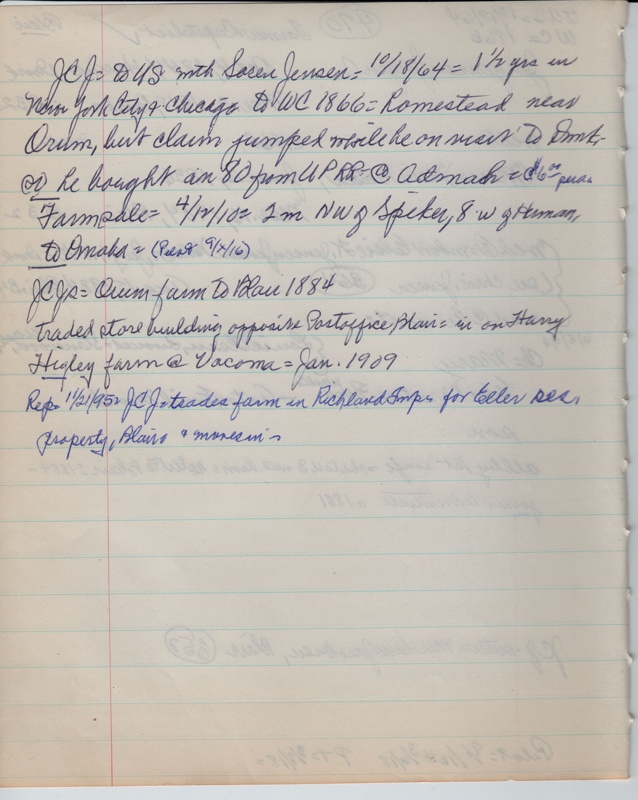 JCJ= To US with Soren Jensen= 10/18/64= 1 1/2 yrs in
New York City & Chicago To WC 1866= Homestead near
Orum, but claim jumped while he on visit To
he bought an 80 from UPRR @ Admah = $6.00 per a
Farmsale= 4/12/10= 2m NW of Spiker, 8 w of Herman,
to Omaha= (Pilot 9/7/16)
JCJs= Orum farm to Blair 1884
traded store building opposite Postoffice Blair= in on Harry
Higley farm @ Vacoma= Jan. 1909
Rep= 11/21/95= JCJ= trades farm in Richland Twp= for Eller res.
property, Blair= & moves in=